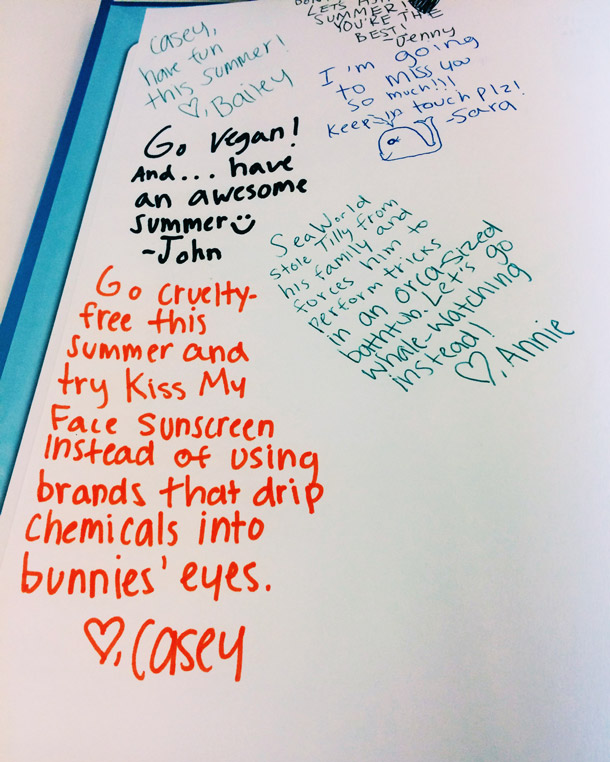 Casey,
have fun
this summer!
♡, Bailey
LETS
SUMMER!
YOU'RE THE
BEST!
-Jenny
I'm going
to miss you
so much!!!
Keep in touch plz!
-Sara
Go Vegan!
And... have
an awesome
summer☺
-John
SeaWorld
stole Tilly from
his family and
forces him to
perform tricks
in an orca-sized
bathtub. Let's go
whale-watching
instead!
♡, Annie
Go Cruelty-
free this
summer and
try Kiss My
Face Sunscreen
Instead of using
brands that drip
chemicals into
bunnies' eyes.
♡, Casey